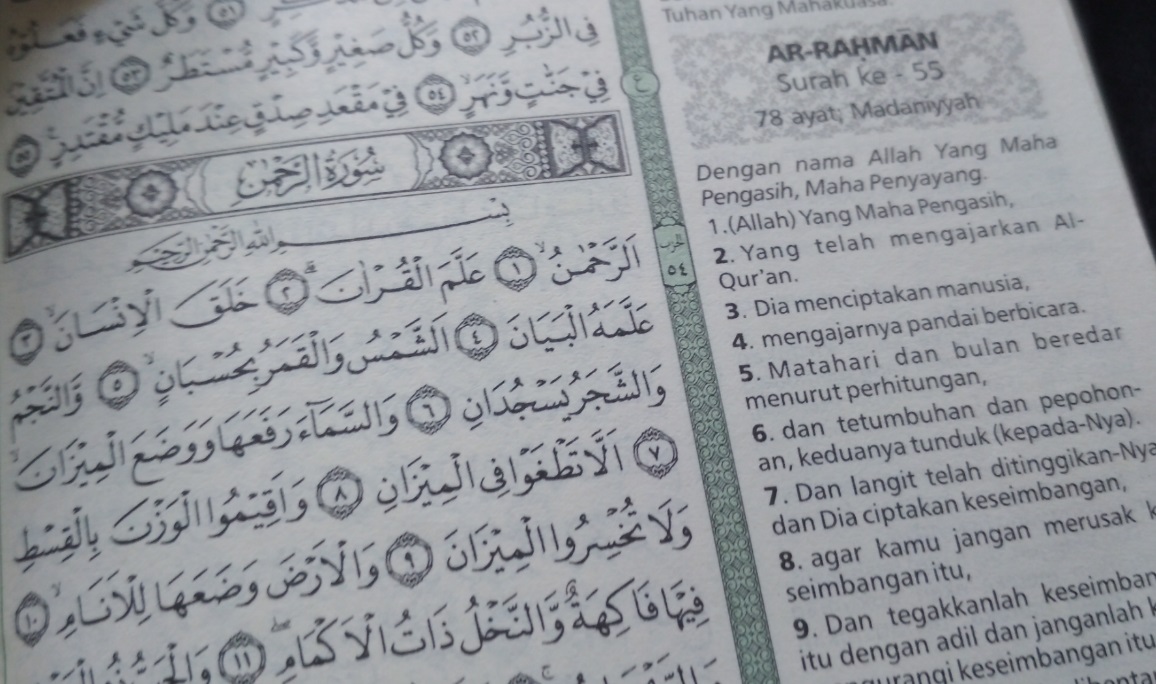 فِى الزُّبُرِ ٥٢ وَكُلُّ صَغِيْرٍ وَّكَبِيْرٍ مُّسْتَطَرٌ ٥٣ اِنَّ الْمُتَّقِيْنَ
فِيْ جَنّٰتٍ وَّنَهَرٍۙ ٥٤ فِيْ مَقْعَدِ صِدْقٍ عِنْدَ مَلِيْكٍ مُّقْتَدِرٍ ٥٥
ع
سُوْرَةُ الرَّحْمٰنِ
بِسْــــــــمِ اللّٰهِ الرَّحْمٰنِ الرَّحِيْمِ
اَلرَّحْمٰنُۙ ١ عَلَّمَ الْقُرْاٰنَۗ ٢ خَلَقَ الْاِنْسَانَۙ ٣
عَلَّمَهُ الْبَيَانَ ٤ اَلشَّمْسُ وَالْقَمَرُ بِحُسْبَانٍۙ ٥ وَّالنَّجْمُ
وَالشَّجَرُ يَسْجُدَانِ ٦ وَالسَّمَاۤءَ رَفَعَهَا وَوَضَعَ الْمِيْزَانَۙ
٧ اَلَّا تَطْغَوْا فِى الْمِيْزَانِ ٨ وَاَقِيْمُوا الْوَزْنَ بِالْقِسْطِ
وَلَا تُخْسِرُوا الْمِيْزَانَ ٩ وَالْاَرْضَ وَضَعَهَا لِلْاَنَامِۙ ١٠
فِيْهَا فَاكِهَةٌ وَّالنَّخْلُ ذَاتُ الْاَكْمَامِۖ ١١
٥٤
Tuhan Yang Mahakuasa.
AR-RAḤMĀN
Surah ke - 55
78 ayat; Madaniyyah
Dengan nama Allah Yang Maha
Pengasih, Maha Penyayang.
1.(Allah) Yang Maha Pengasih,
2. Yang telah mengajarkan Al-
Qur'an.
3. Dia menciptakan manusia,
4. mengajarnya pandai berbicara.
5. Matahari dan bulan beredar
menurut perhitungan,
6. dan tetumbuhan dan pepohon-
an, keduanya tunduk (kepada-Nya).
7. Dan langit telah ditinggikan-Nya
dan Dia ciptakan keseimbangan,
8. agar kamu jangan merusak k
seimbangan itu,
9. Dan tegakkanlah keseimban
itu dengan adil dan janganlah k
urangi keseimbangan itu